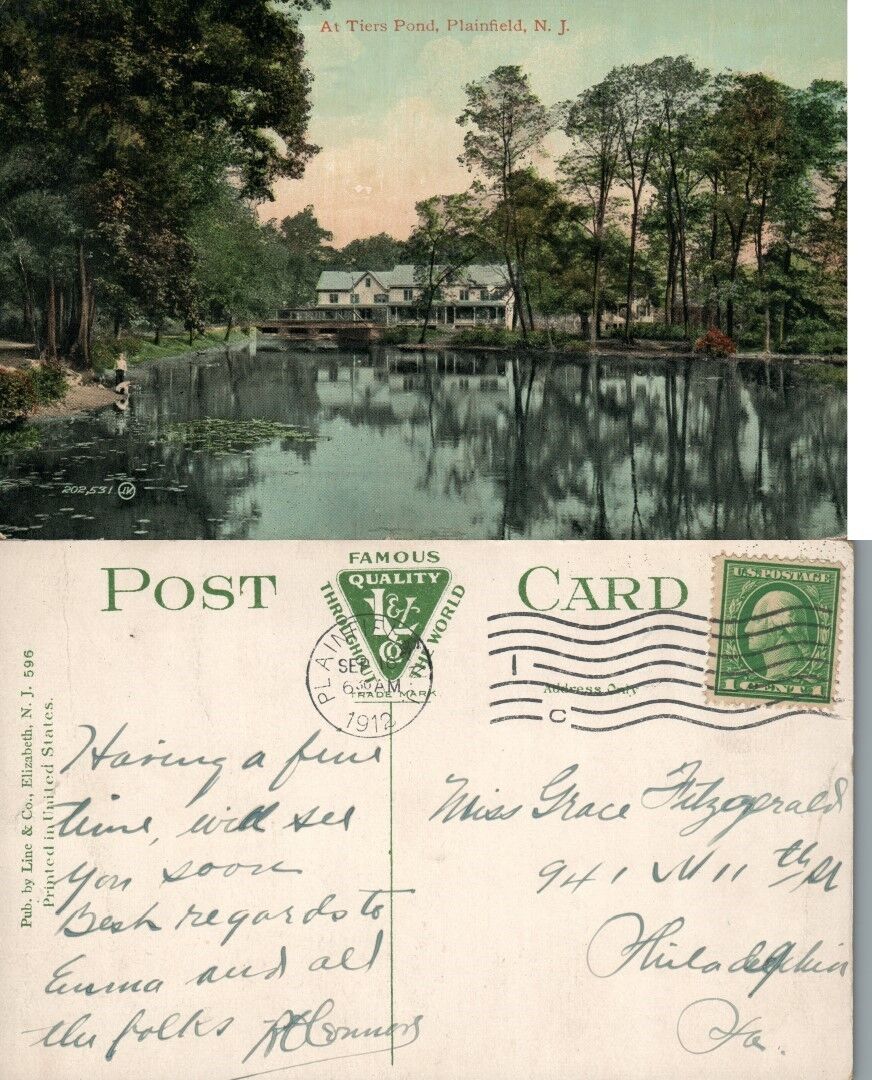 At Tiers Pond, Plainfield, N. J.
202,531 JV
POST CARD
FAMOUS
QUALITY
L&Co
THROUGHOUT THE WORLD
TRADE MARK
PLAINFIELD
SEP
6 30 AM
1912
1
C
Address Only
U.S. POSTAGE
1 CENT 1
Pub. by Line & Co., Elizabeth, N. J. 596
Printed in United States.
Having a fine
time, will see
you soon
Best regards to
Emma and all
the folks
Connors
Miss Grace Fitzgerald
941 N 11 th St
Philadelphia
Pa.